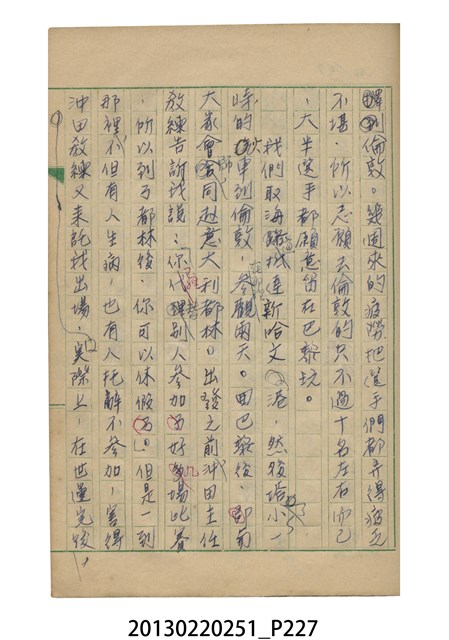 倫敦。幾個來的疲勞把選手們都弄得疲乏
不堪,所以志願去倫敦的只不過十名左右而已
,大半選手都願意留在巴黎玩。
我們取海路抵達新哈文港,然後搭小
時的火車到倫敦,參觀兩天。回巴黎後,即前
大家會同赴意大利都林。出發之前沖田主任
教練告訴我說:你代替別人參加好場比賽
,所以到了都林後,你可以休假。但是一到
那裡不但有人生病,也有人托辭不參加,害得
沖田教練又來託我出場,實際上,在世運完後
20130220251_P227